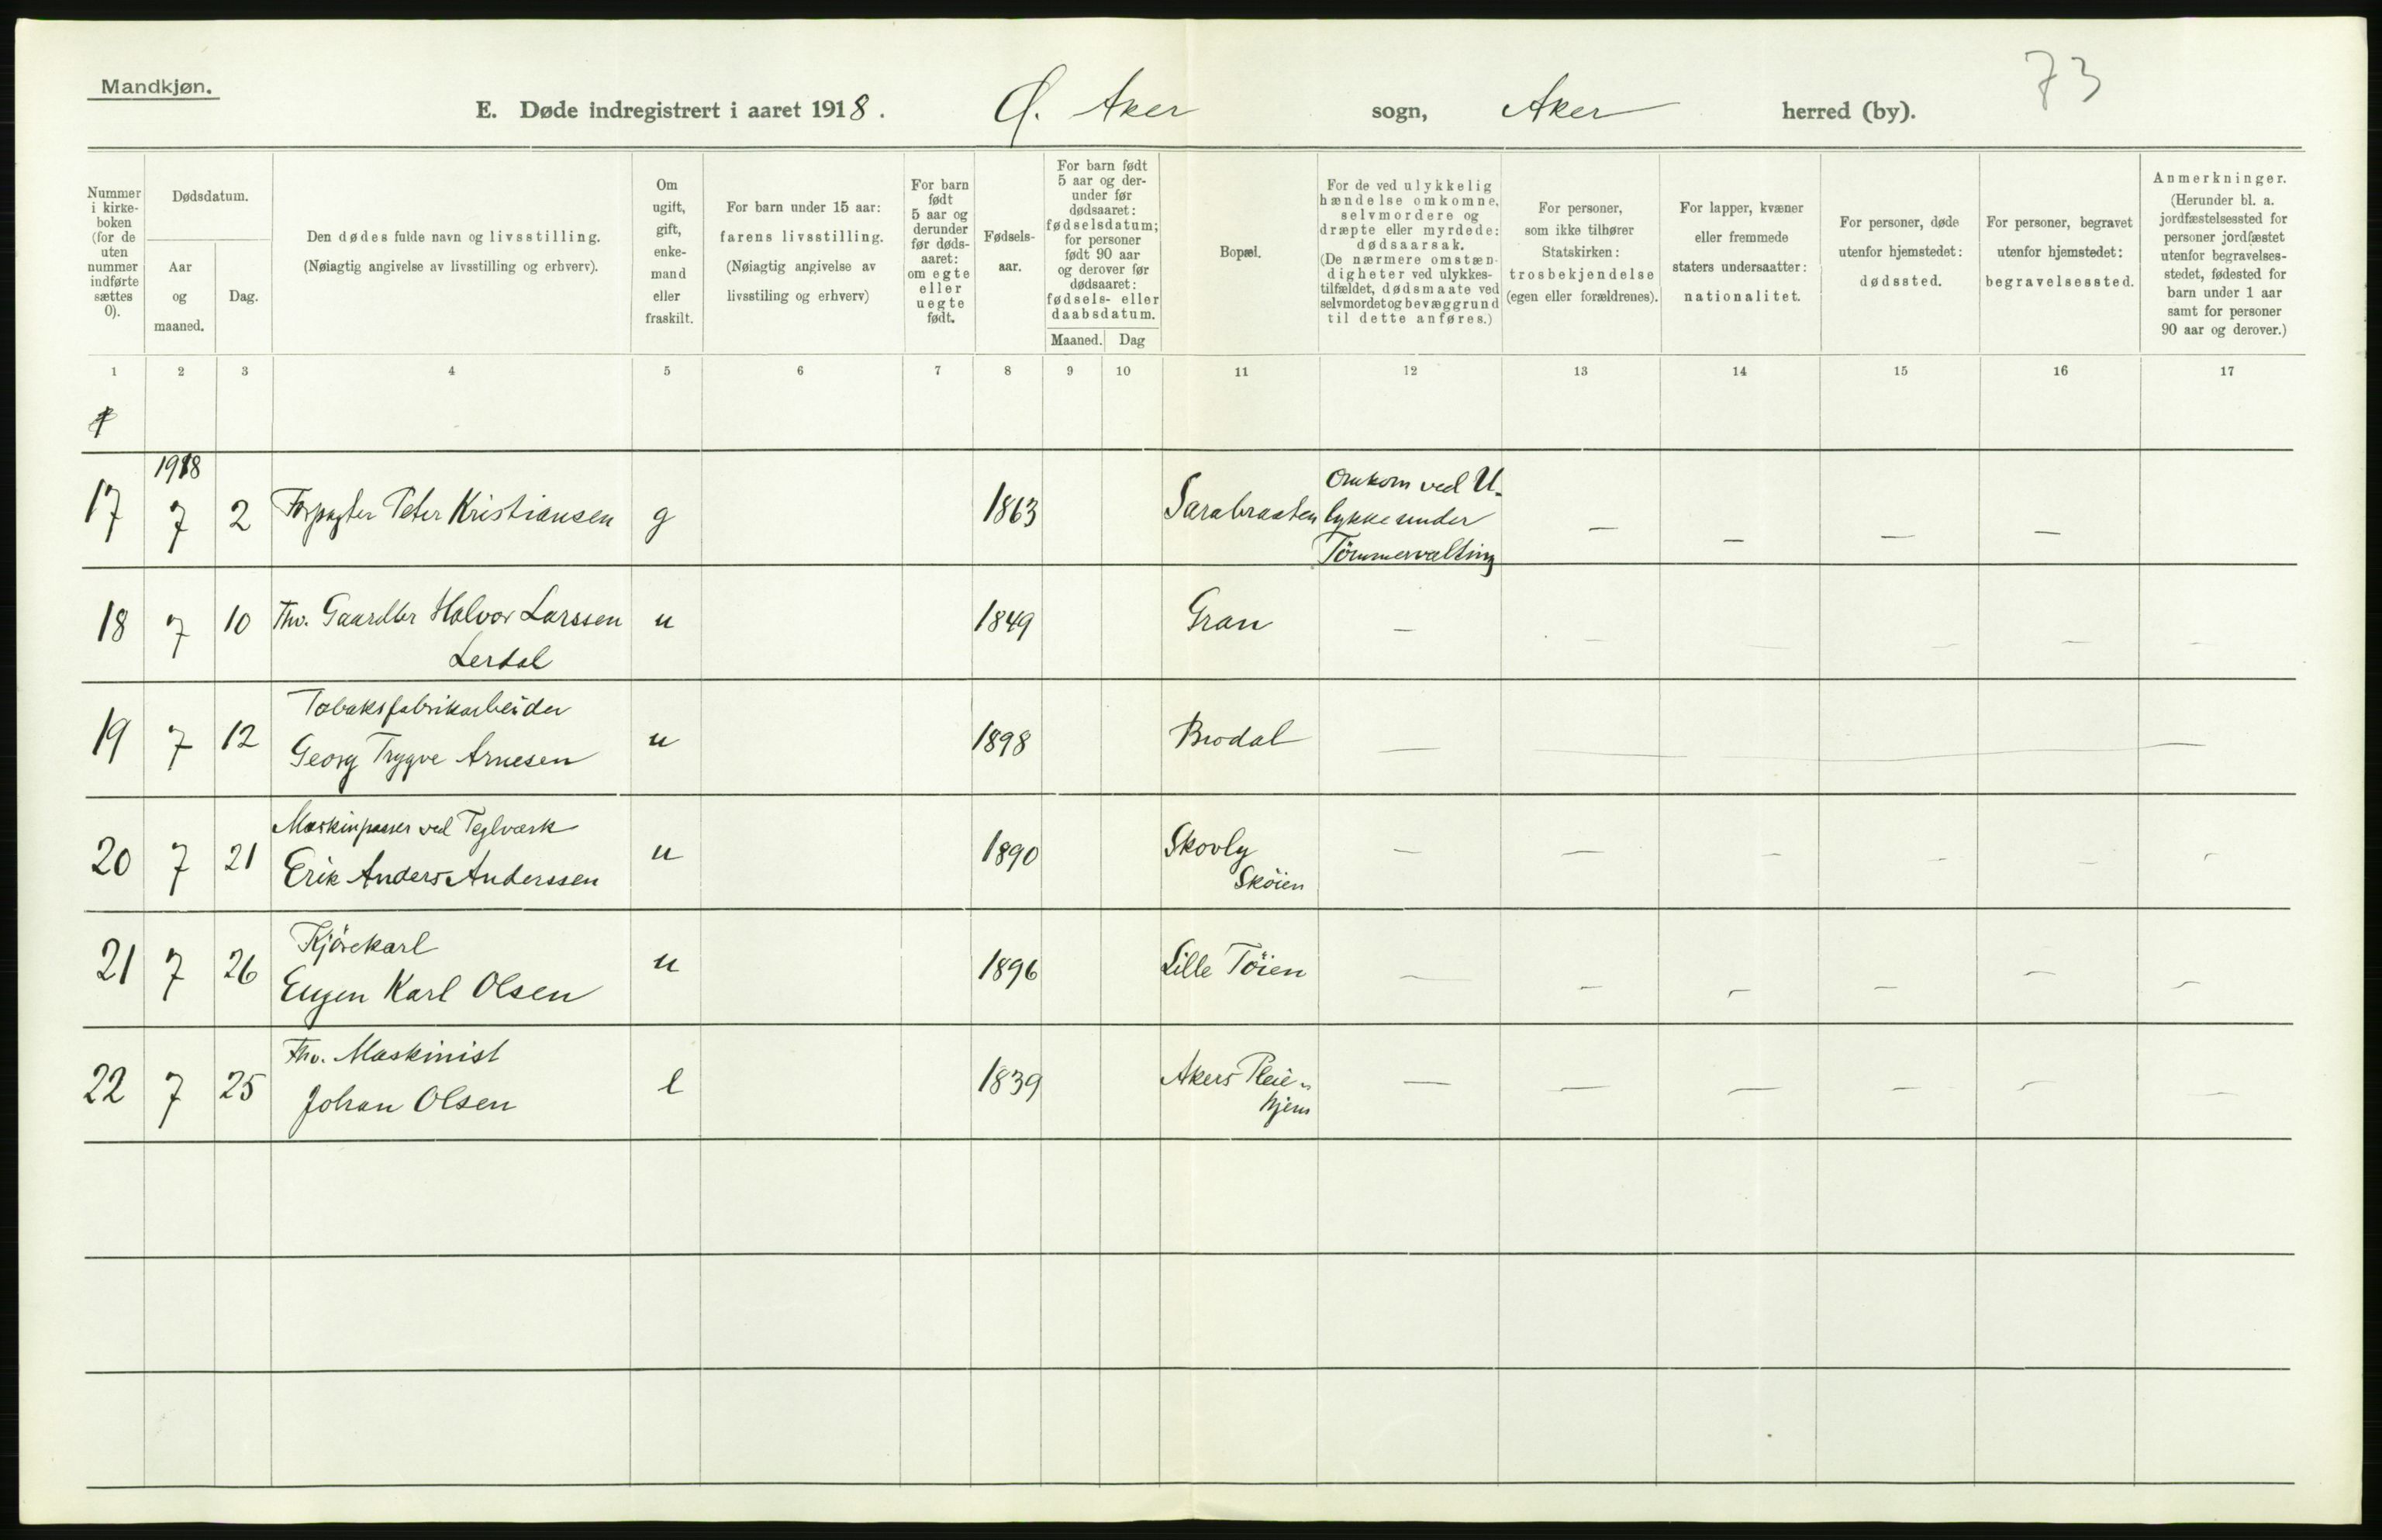 73
Mandkjøn.
E. Døde indregistrert i aaret 1918. Ø. Aker sogn, Aker herred (by).
Nummer i kirkeboken (for de uten nummer indførte sættes 0).
Dødsdatum.
Aar og maaned.
Dag.
Den dødes fulde navn og livsstilling.
(Nøiagtig angivelse av livsstilling og erhverv).
Om ugift, gift, enkemand eller fraskilt.
For barn under 15 aar: farens livsstilling.
(Nøiagtig angivelse av livsstiling og erhverv)
For barn født 5 aar og derunder før dødsaaret: om egte eller uegte født.
Fødselsaar.
For barn født 5 aar og derunder før dødsaaret: fødselsdatum; for personer født 90 aar og derover før dødsaaret: fødsels- eller daabsdatum.
Maaned. Dag
Bopæl.
For de ved ulykkelig hændelse omkomne, selvmordere og dræpte eller myrdede: dødsaarsak.
(De nærmere omstændigheter ved ulykkestilfældet, dødsmaate ved selvmordet og bevæggrund til dette anføres.)
For personer, som ikke tilhører Statskirken: trosbekjendelse (egen eller forældrenes).
For lapper, kvæner eller fremmede staters undersaatter: nationalitet.
For personer, døde utenfor hjemstedet: dødssted.
For personer, begravet utenfor hjemstedet: begravelsessted.
Anmerkninger.
(Herunder bl. a. jordfæstelsessted for personer jordfæstet utenfor begravelsesstedet, fødested for barn under 1 aar samt for personer 90 aar og derover.)
1 2 3 4 5 6 7 8 9 10 11 12 13 14 15 16 17
1918
17 7 2 Forpagter Peter Kristiansen g 1863 Sarabraaten Omkom ved U-
lykke under
Tömmervælting — — — —
18 7 10 Fhv. Gaardbr Halvor Larssen u 1849 Gran — — — — — —
Lerdal
Tobaksfabrikarbeider
19 7 12 Georg Trygve Arnesen u 1898 Brodal — —
Maskinpasser ved Teglværk
20 7 21 Erik Anders Anderssen u 1890 Skovly
Sköien — — — — — —
Kjörekarl
21 7 26 Eugen Karl Olsen u 1896 Lille Töien — — — — — —
Fhv. Maskinist
22 7 25 Johan Olsen e 1839 Akers Pleie-
hjem — — — — — —